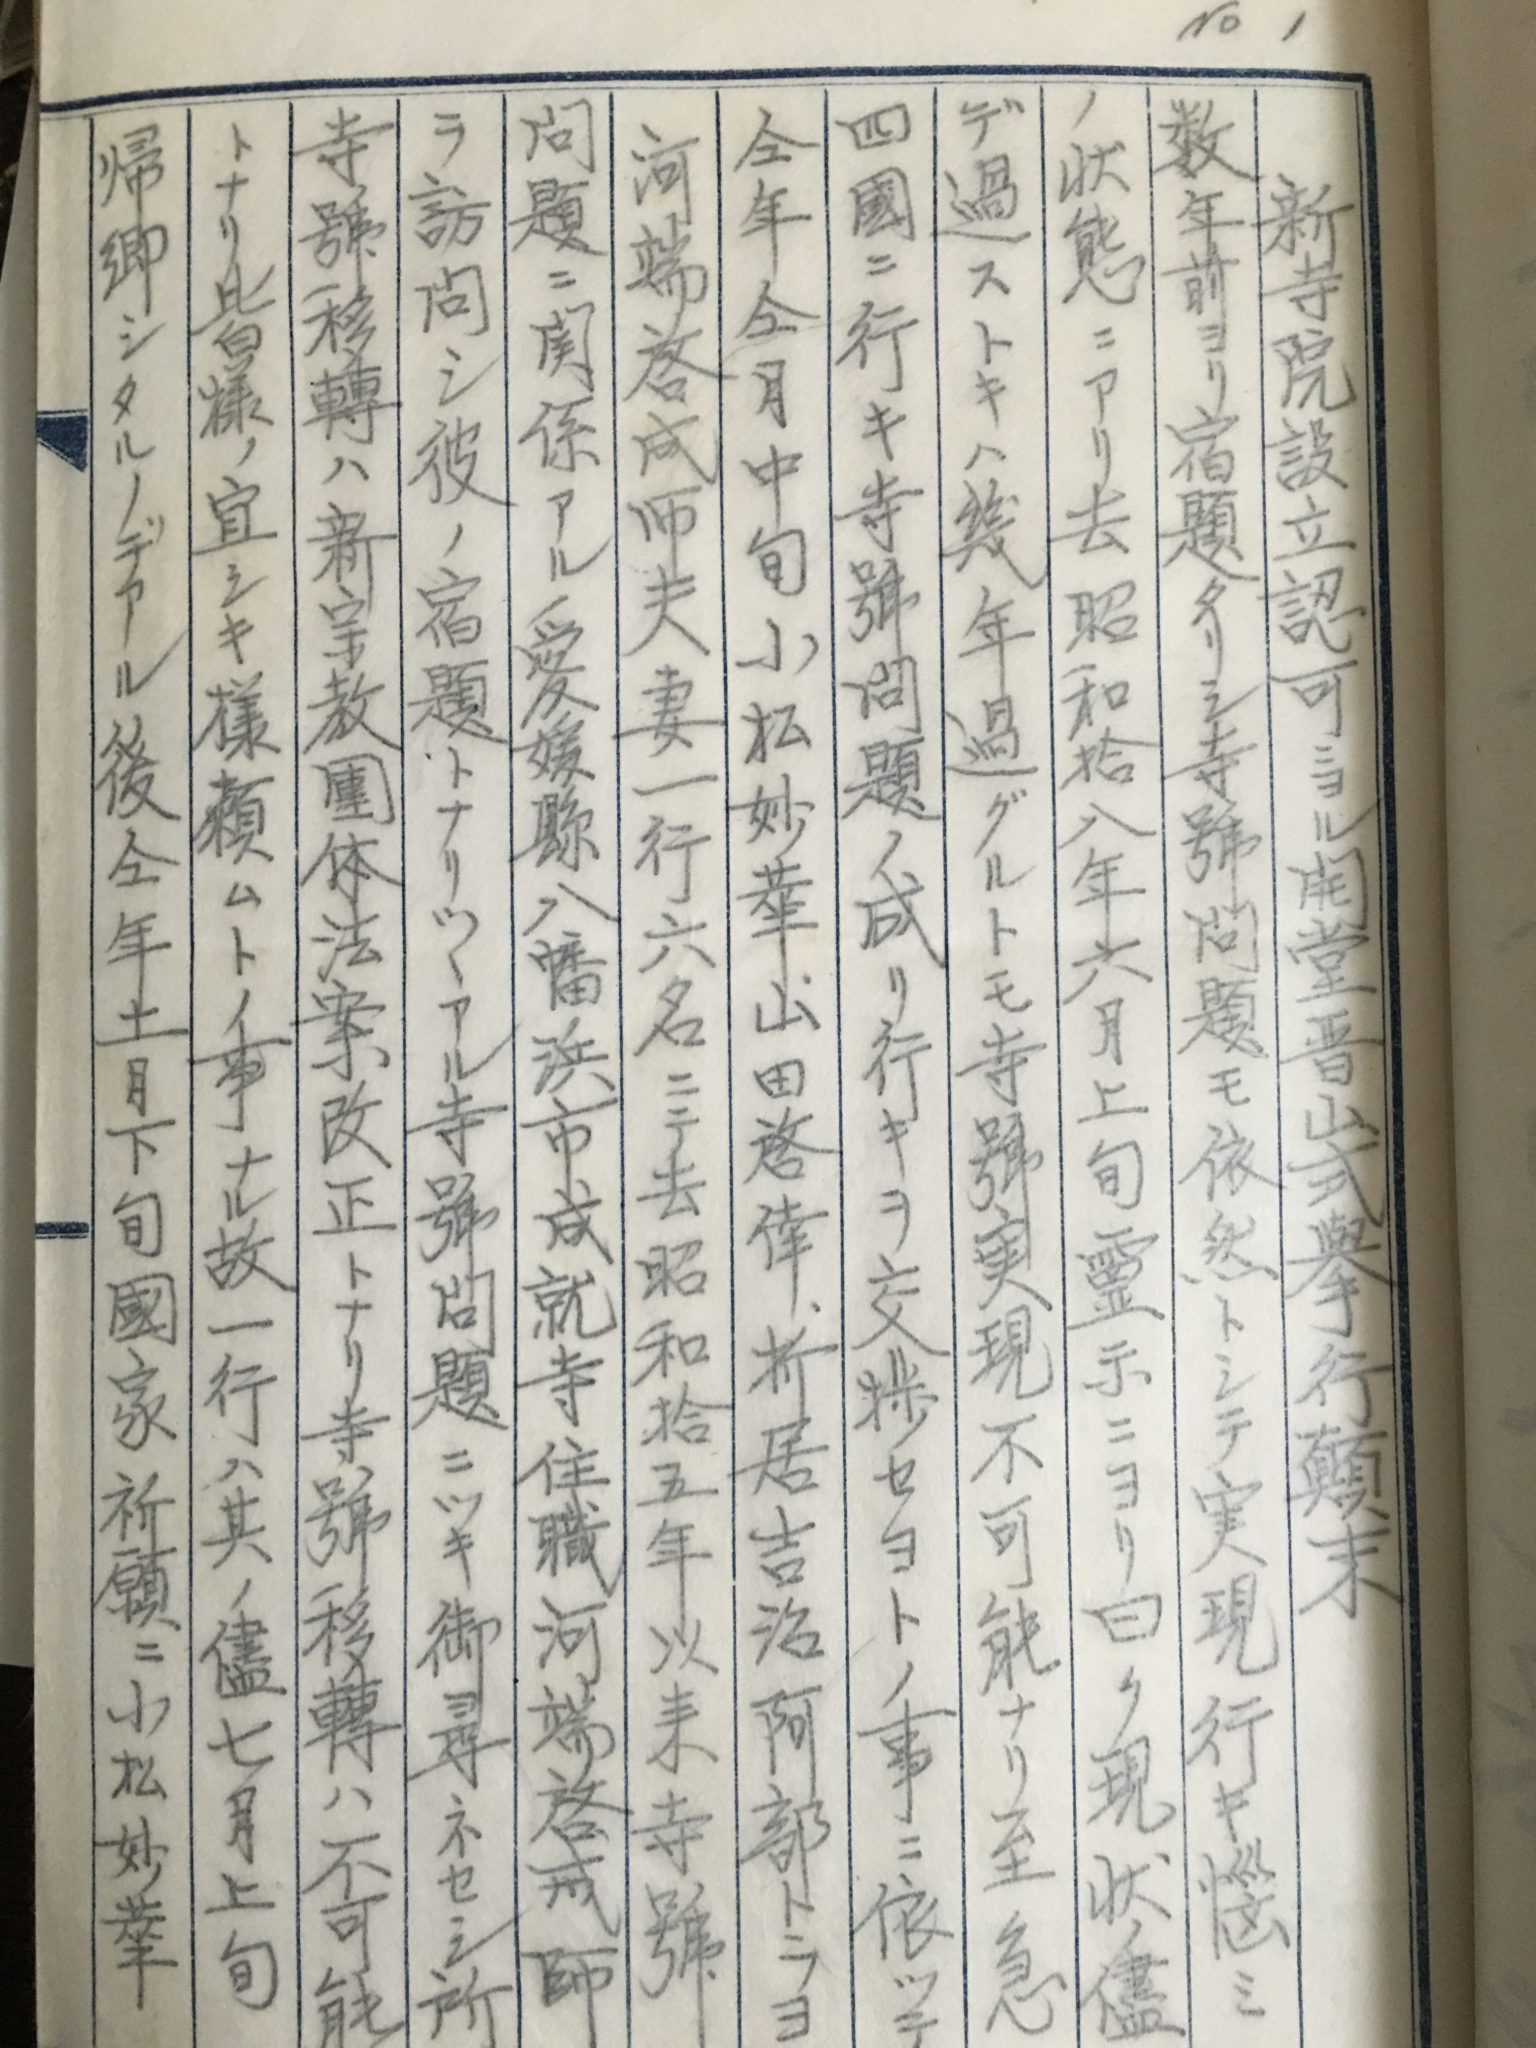 No 1
新寺院設立認可ニヨル開堂晋山式擧行顛末
数年前ヨリ宿題タリシ寺號問題モ依然トシテ実現行キ悩ミ
ノ状態ニアリ去昭和拾八年六月上旬霊示ニヨリ曰ク現状ノ儘
デ過ストキハ幾年過グルトモ寺號実現不可能ナリ至急
四國ニ行キ寺號問題ノ成リ行キヲ交渉セヨトノ事ニ依ッテ
仝年仝月中旬小松妙華、山田啓偉、折居吉治阿部トラヨ
河端啓成師夫妻一行六名ニテ去昭和拾五年以来寺號
問題ニ関係アル愛媛縣八幡浜市成就寺住職河端啓戒師
ヲ訪問シ彼ノ宿題トナリツヽアル寺號問題ニツキ御尋ネセシ所
寺號移轉ハ新宗教團体法案改正トナリ寺號移轉ハ不可能
トナリ皆様ノ宜シキ様頼ムトノ事ナル故一行ハ其ノ儘七月上旬
帰郷シタルノデアル後仝年十一月下旬國家祈願ニ小松妙華